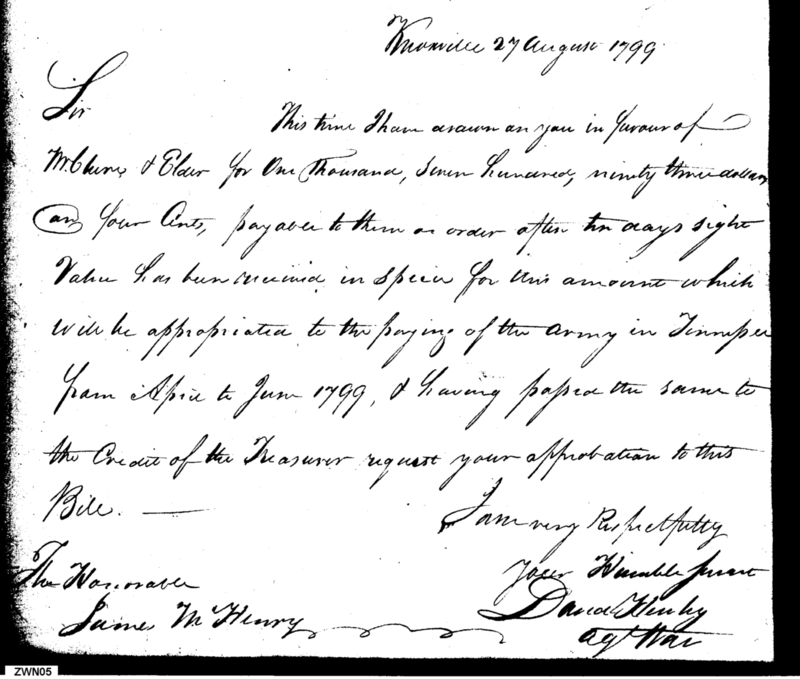 Knoxville 27 August 1799
Sir
This time I have drawn on you in favour of
& Elder for One Thousand, Seven hundred, ninety three dollars
and four Cents, payable to them or order after ten days sight
Value has been received in specie for this amount which
will be appropriated to the paying of the army in Tennessee
from April to June 1799, & having passed the same to
the Credit of the Treasurer request your approbation to this
Bill. —
I am very Respectfully
Your Humble Servt
The Honorable
David Henley
James McHenry
agt War
ZWN05